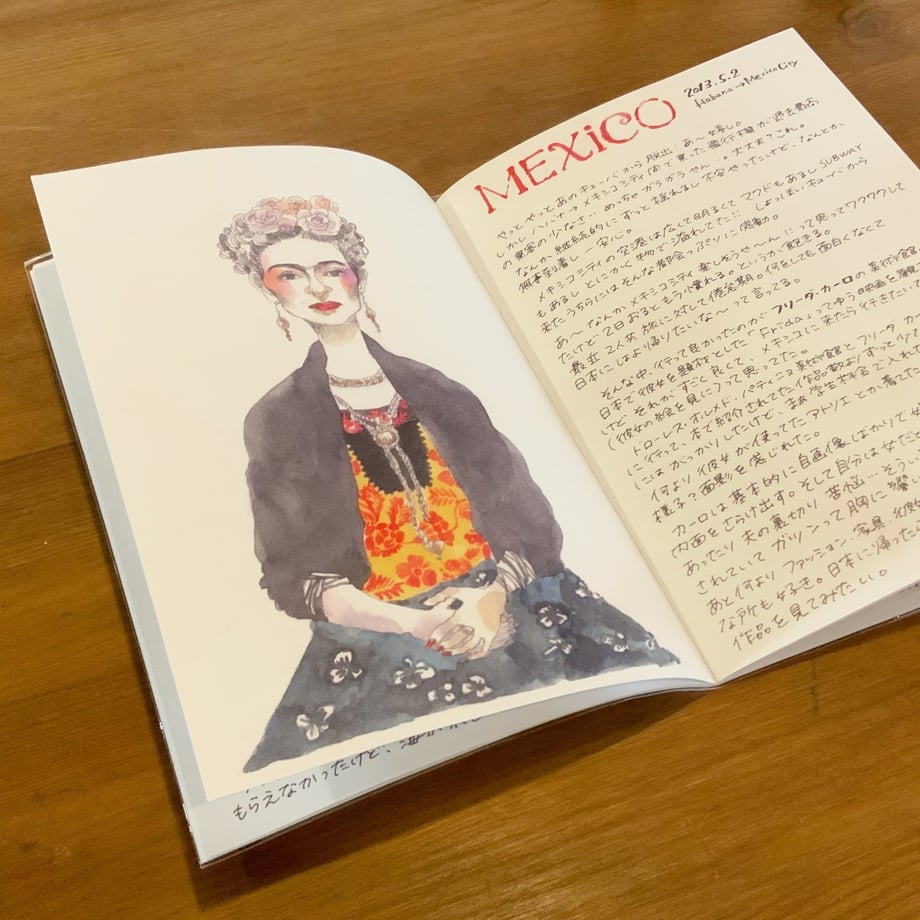 MEXiCO
2013.5.2
Habana→Mexico City
やっと、やっとあのキューバから脱出！あ〜嬉し。
しかしハバナ→メキシコシティ間で乗った飛行機が過去最高
の乗客の少なさ‥めっちゃガラガラやん…。大丈夫？これ。
なんか継続的にずっと揺れるし不安やったけど、なんとか
無事到着し一安心。
メキシコシティの空港は広くて明るくてマクドもあるしSUBWAY
もあるしとにかく物で溢れてた!! しょっぱいキューバから
来たうちらにはそんな都会っぷりに感動。
あ〜なんかメキシコシティ楽しそうや〜ん!!って思ってワクワクして
たけど2日おるともう慣れる。というか飽きる。
最近2人共旅に対して倦怠期。何をしても面白くなくて
日本にはよ帰りたいな〜って言ってる。
そんな中、行って良かったのがフリーダ・カーロの美術館
日本で彼女を題材とした「Frida」ってゆう映画を
けどそれがすごく良くて、メキシコに来たら行きたいて
(彼女の絵を見に)って思ってた。
ドローレス・オルメド・パティニョ美術館とフリーダ・カー
に行って、本で紹介されてた作品の数よりずっと少
にはがっかりしたけど、まあ学生料金で入れ
何より彼女が使ってたアトリエとか着てた
様子？面影を感じれた。
カーロは基本的に自画像しばかりで
内面をさらけ出す。そして自分は女だと
あったり夫の裏切り 苦悩…そうい
されていてガツンって胸に響
あと何よりファッション・家具・
な所も好き。日本に帰ったら
作品を見てみたい。
もらえなかったけど、海が